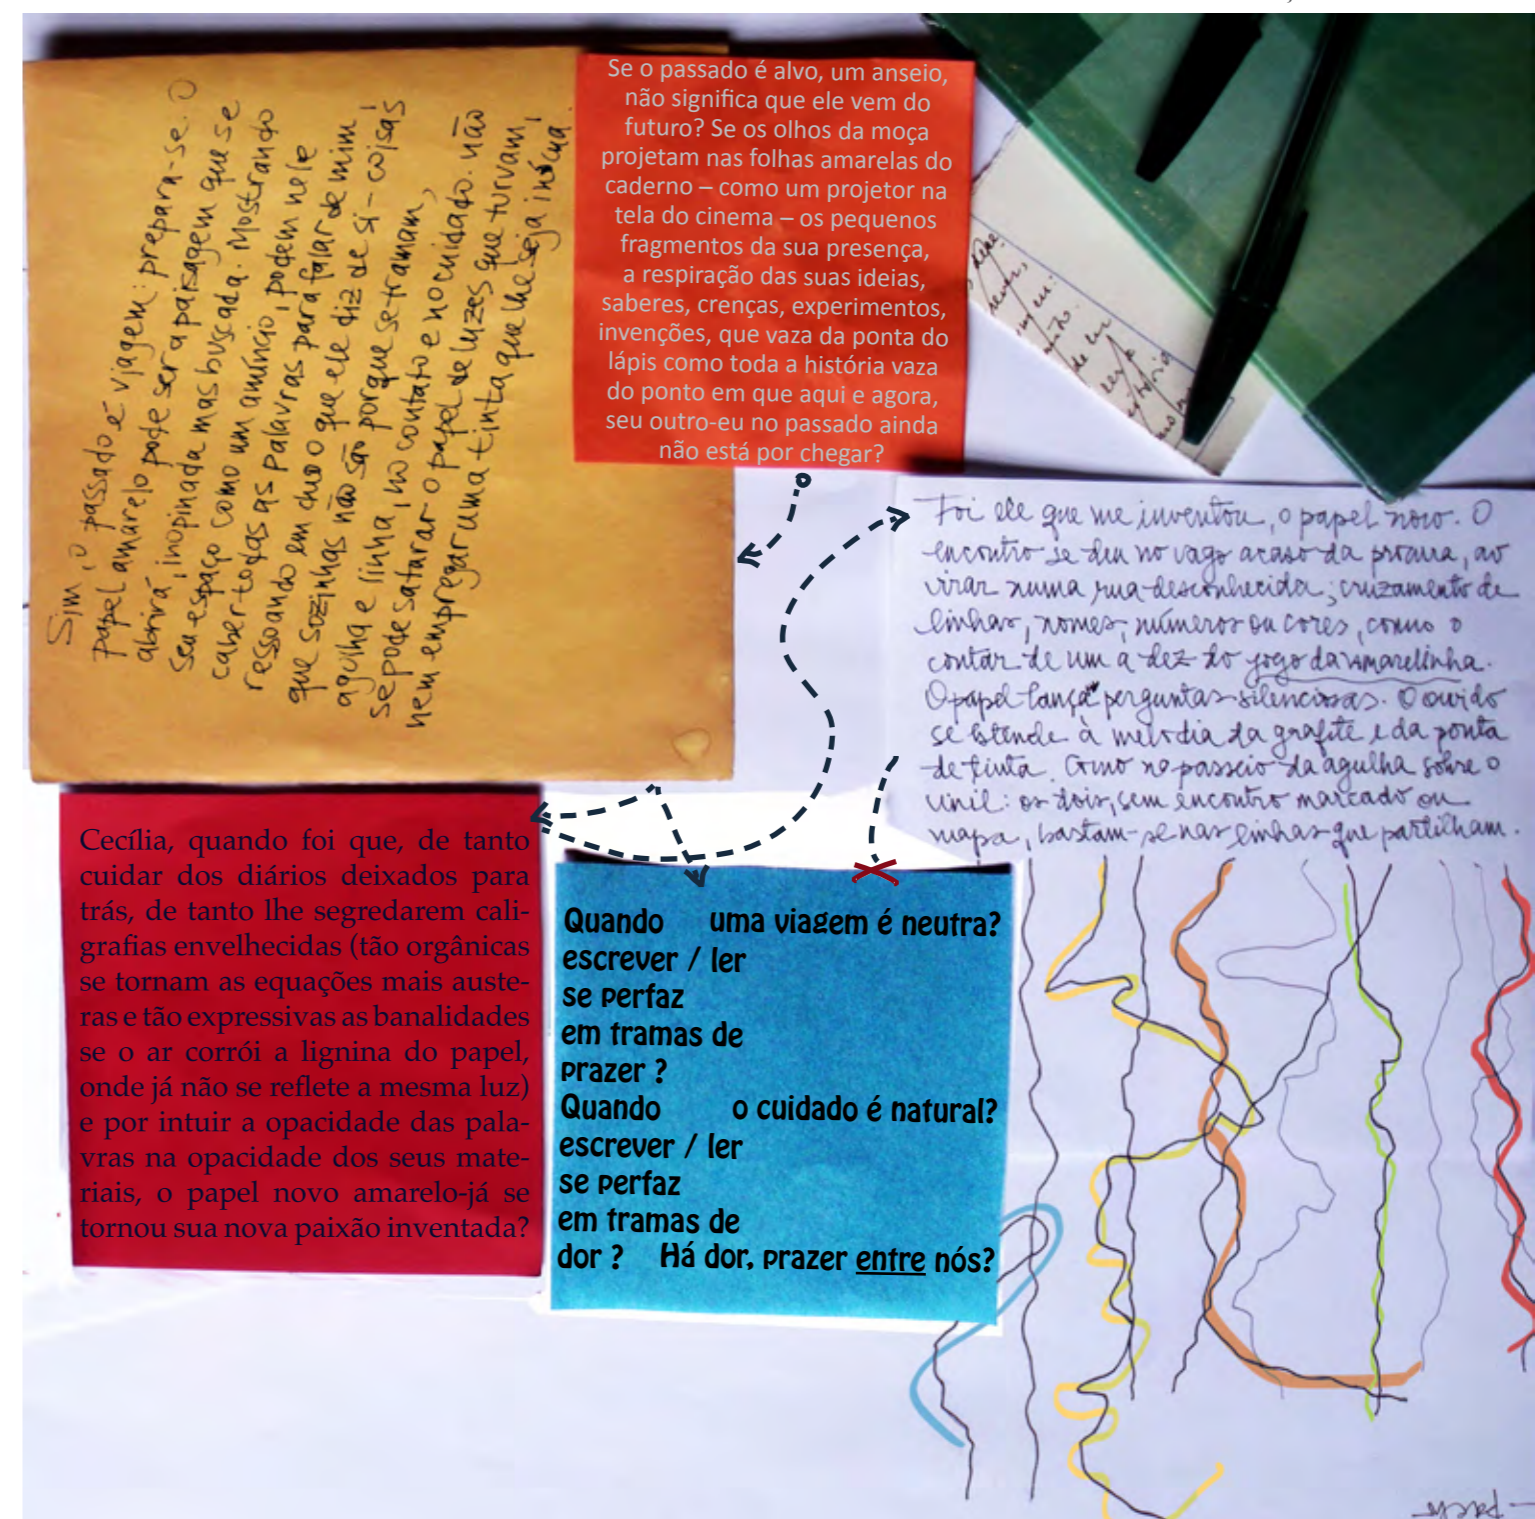 Sim, o passado é viagem: prepara-se. O
papel amarelo pode ser a paisagem que se
abrirá, inopinada mas buscada. Mostrando
seu espaço como um anúncio, podem nele
caber todas as palavras para falar de mim
ressoando em chão o que ele diz de si – coisas
que sozinhas não são porque se tramam,
agulha e linha, no contato e no cuidado. não
se pode saturar o papel de luzes que turvam,
nem empregar uma tinta que lhe seja inócua.
Se o passado é alvo, um anseio,
não significa que ele vem do
futuro? Se os olhos da moça
projetam nas folhas amarelas do
caderno – como um projetor na
tela do cinema – os pequenos
fragmentos da sua presença,
a respiração das suas ideias,
saberes, crenças, experimentos,
invenções, que vaza da ponta do
lápis como toda a história vaza
do ponto em que aqui e agora,
seu outro-eu no passado ainda
não está por chegar?
Foi ele que me inventou, o papel novo. O
encontro se deu no vago acaso da procura, ao
virar numa rua desconhecida; cruzamento de
linhas, nomes, números ou cores, como o
contar de um a dez do jogo da amarelinha.
O papel lança perguntas silenciosas. O ouvido
se estende à melodia da grafite e da ponta
de tinta. Como no passeio da agulha sobre o
vinil: os dois, sem encontro marcado ou
mapa, bastam-se nas linhas que partilham.
Cecília, quando foi que, de tanto
cuidar dos diários deixados para
trás, de tanto lhe segredarem cali-
grafias envelhecidas (tão orgânicas
se tornam as equações mais auste-
ras e tão expressivas as banalidades
se o ar corrói a lignina do papel,
onde já não se reflete a mesma luz)
e por intuir a opacidade das pala-
vras na opacidade dos seus mate-
riais, o papel novo amarelo-já se
tornou sua nova paixão inventada?
Quando uma viagem é neutra?
escrever / ler
se perfaz
em tramas de
prazer ?
Quando o cuidado é natural?
escrever / ler
se perfaz
em tramas de
dor ? Há dor, prazer entre nós?